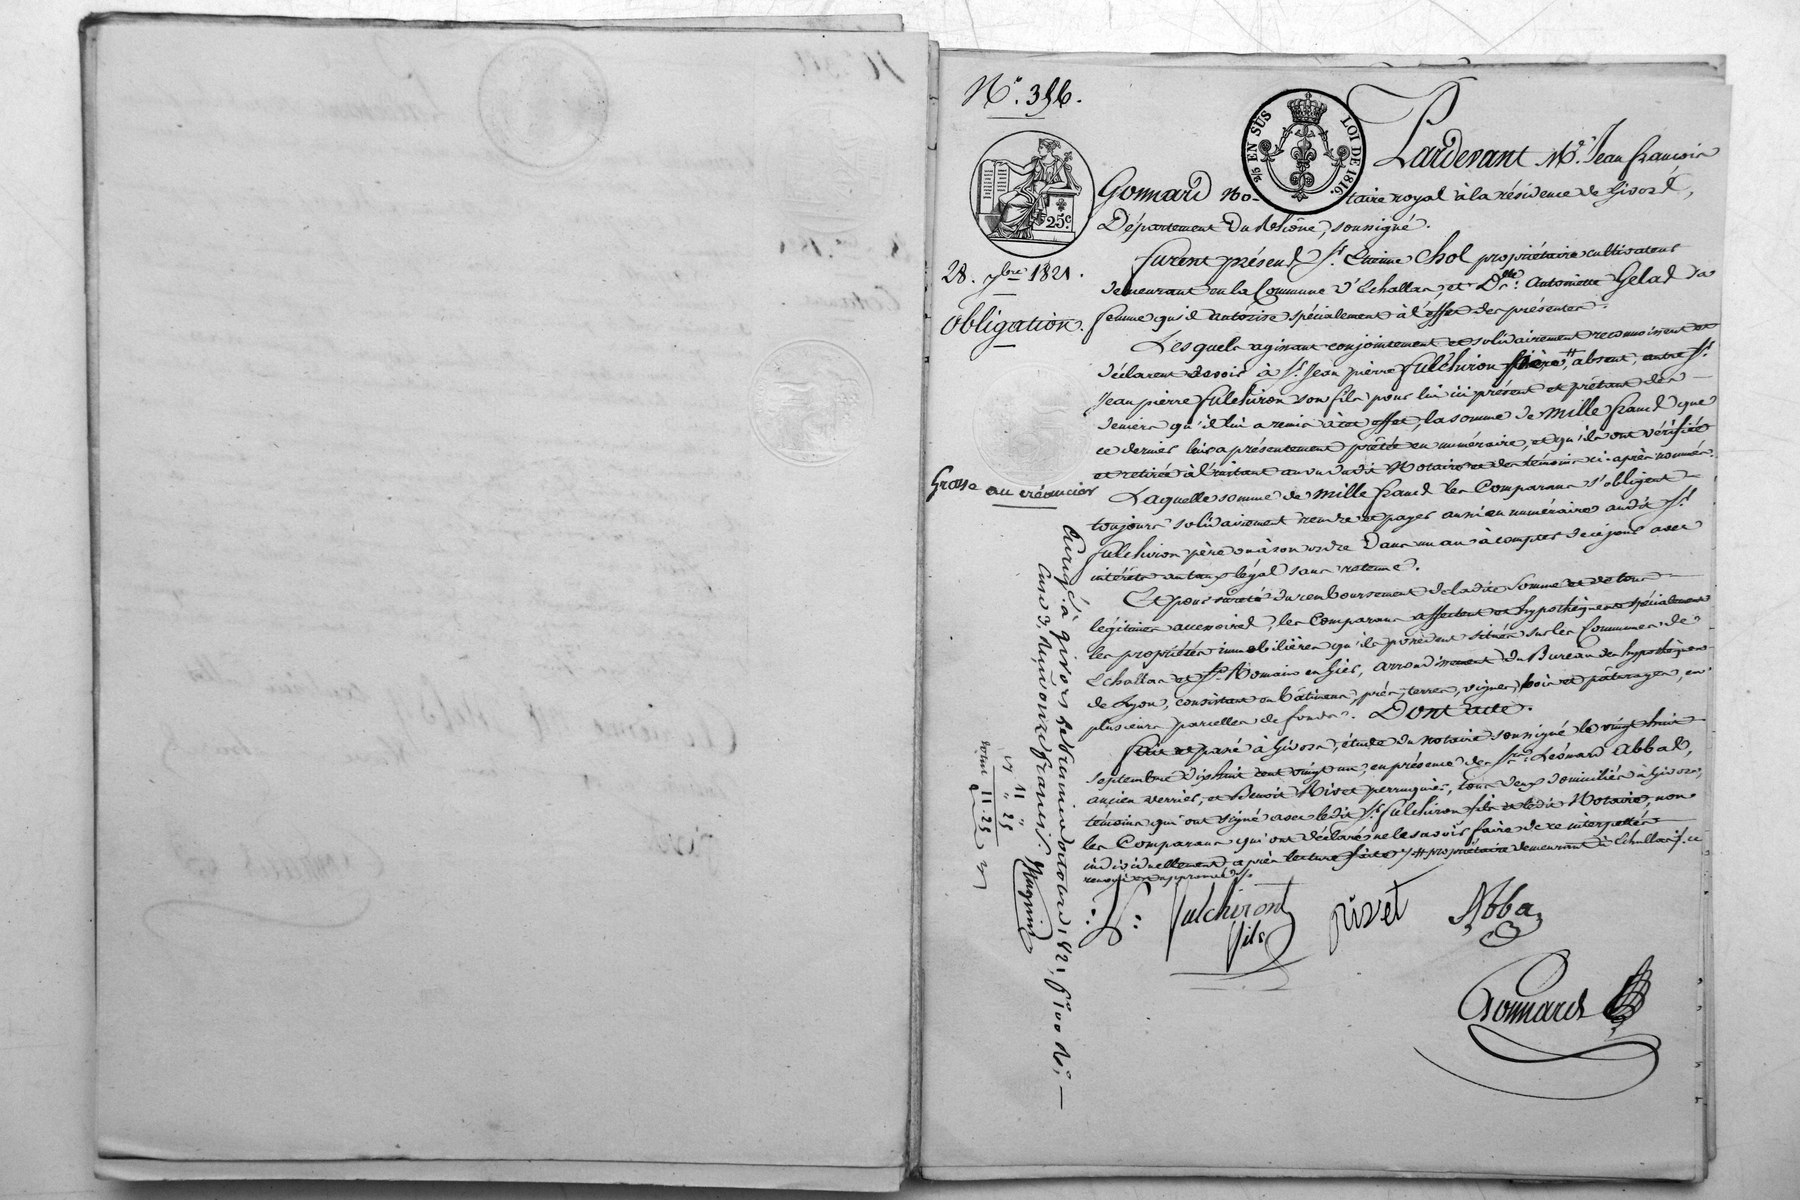 N.° 356.
EN SUS
LOI DE 1816.
25.c
28. 7bre 1821.
Obligation.
Grosse au créancier
Pardevant M.e Jean françois
Gonnard No- taire royal à la résidence de Givors,
Département du Rhône, soussigné.
furent présens S.r Etienne Chol propriétaire cultivateur
demeurant en la Commune d'Echallas, et D.lle Antoinette Gelas sa
femme qu'il autorise spécialement à l'effet des présentes.
Lesquels agissant conjointement et solidairement reconnoissent et
déclarent devoir à S.r Jean pierre fulchiron père, # absent, entre S.r
Jean pierre fulchiron son fils pour lui ici présent et prêtant des
deniers qu'il lui a remis à cet effet, la somme de mille francs que
ce dernier leur a présentement prêtée en numéraire, et qu'ils ont vérifiée
et retirée à l'instant au vu dudit Notaire et des témoins ci-après nommés.
Laquelle somme de mille francs les Comparans s'obligent
toujours solidairement rendre et payer aussi en numéraire audit S.r
fulchiron père ou à son ordre Dans un an à compter de ce jour avec
intérêts au taux légal sans retenue.
Et pour sûreté du remboursement de ladite somme et de tous
légitimes accessoires, les Comparans affectent et hypothèquent spécialement
les propriétés immobilières qu'ils possèdent situées sur les Communes de
Echallas et S.t Romain en Gier, arrondissement du Bureau des hypothèques
de Lyon, consistant en bâtimens, prés, terres, vignes, bois et pâturages, en
plusieurs parcelles de fonds. Dont acte.
fait et passé à Givors, étude du notaire soussigné le vingt huit
septembre dix huit cent vingt un, en présence des S.rs Léonard Abbal,
ancien verrier, et Benoît Rivet perruquier, tous deux domiciliés à Givors,
témoins qui ont signé avec ledit S.r fulchiron fils et ledit Notaire, non
les Comparans qui ont déclaré ne le savoir faire de ce interpellés
individuellement après lecture faite / # propriétaire demeurant à Echallas /. ce
renvoi est approuvé /.
fulchiront
fils
rivet
Abba
Gonnard
Enregé. à Givors le premier octobre 1821, f.°
onze francs
11 "
" 25
11. 25